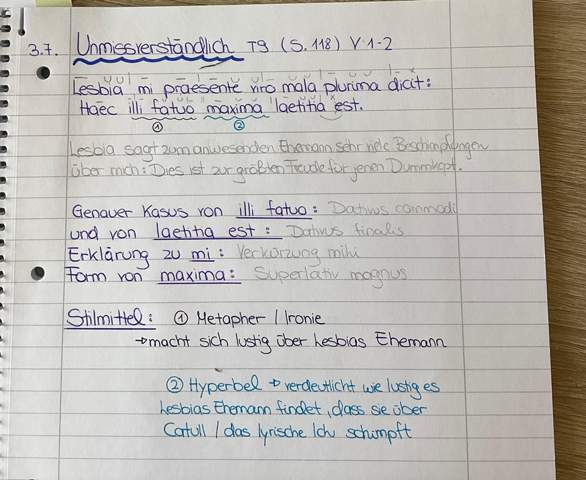 3.7. Unmissverständlich T9 (S. 118) V 1-2
Lesbia mi praesente viro mala plurima dicit:
Haec illi fatuo maxima laetitia est.
① ②
Lesbia sagt zum anwesenden Ehemann sehr viele Beschimpfungen
über mich: Dies ist zur größten Freude für jenen Dummkopf.
Genauer Kasus von illi fatuo: Dativus commodi
und von laetitia est: Dativus finalis
Erklärung zu mi: Verkürzung mihi
Form von maxima: Superlativ magnus
Stilmittel: ① Metapher / Ironie
→ macht sich lustig über Lesbias Ehemann
② Hyperbel → verdeutlicht wie lustig es
Lesbias Ehemann findet, dass sie über
Catull / das lyrische Ich schimpft